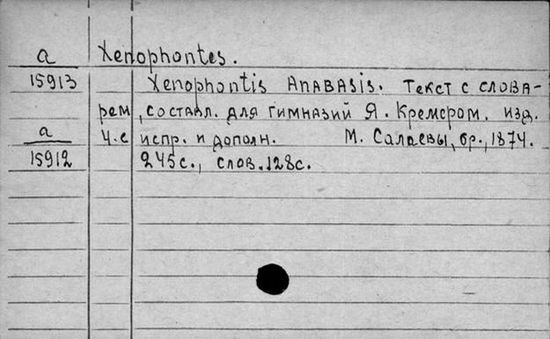 a Xenophontes.
15913 Xenophontis Anabasis. Текст с слова-
рем, составл. для гимназий Я. Кремером. изд.
a 4.е испр. и дополн. М. Салаевы, бр., 1874.
15912 245с., слов. 128с.